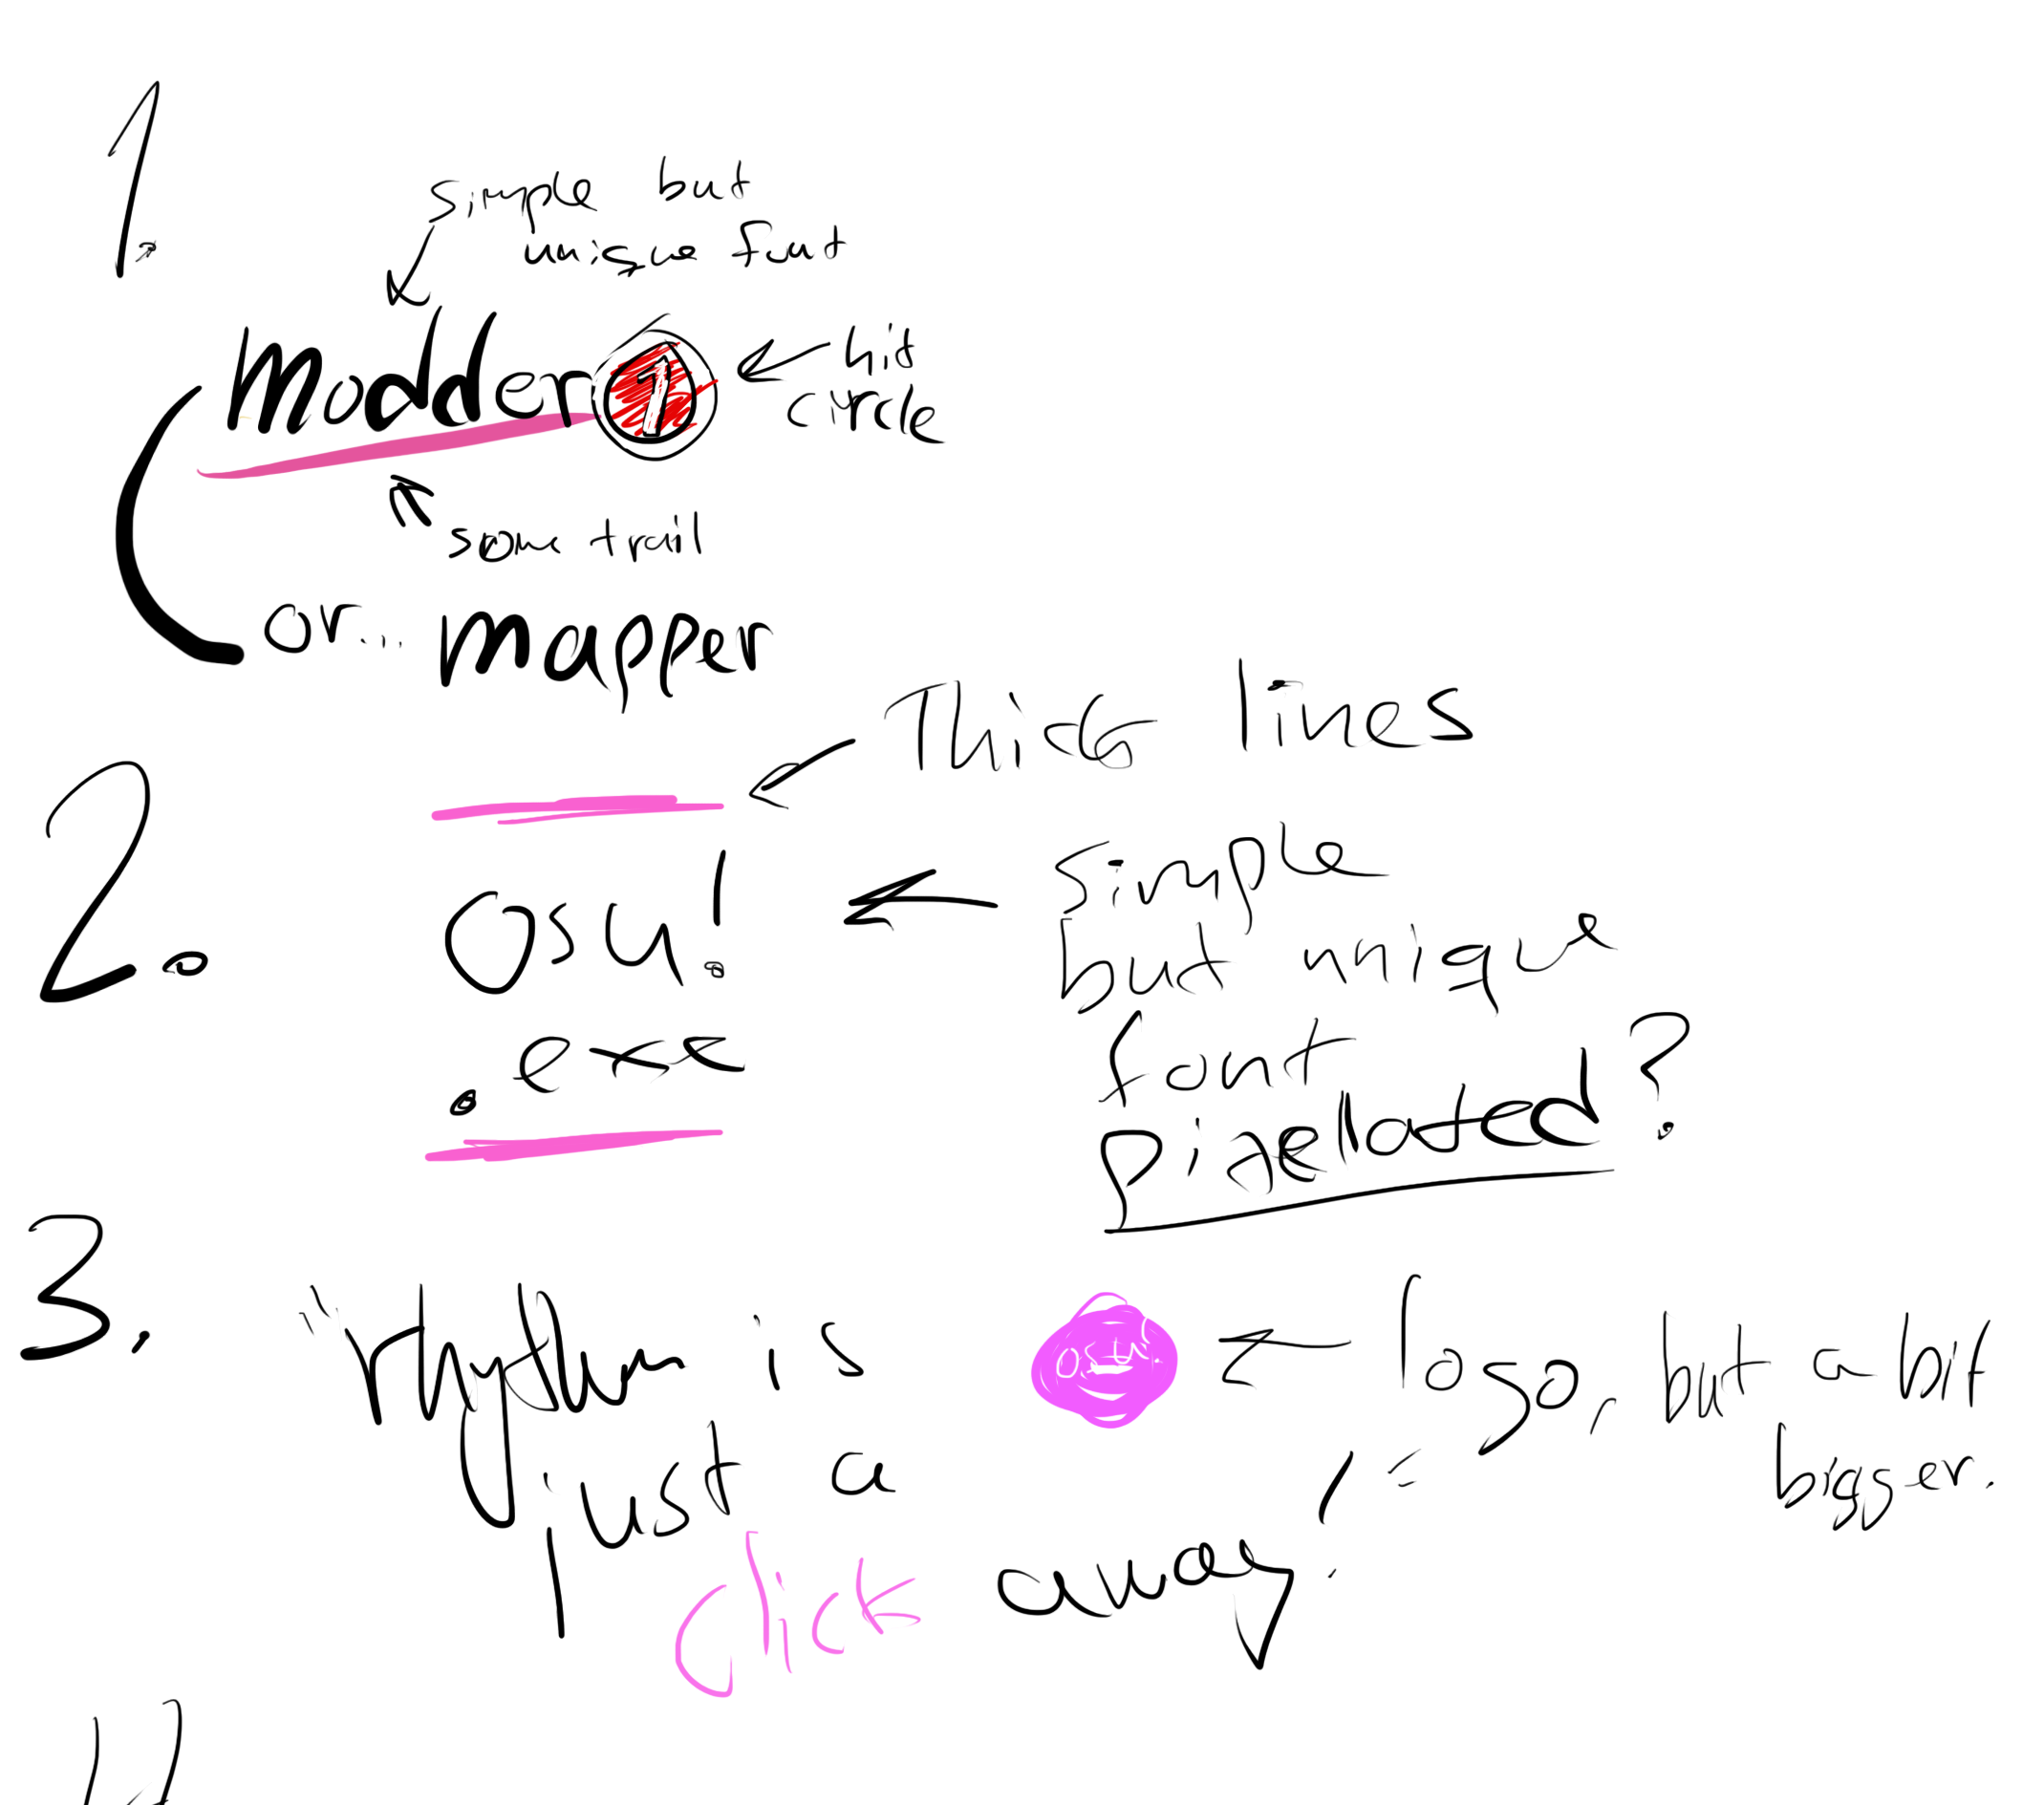 1.
simple but
unique font
modder 1
hit
circle
some trail
or... mapper
Thick lines
2.
osu!
.exe
simple
but unique
font
pixelated?
3.
"rhythm is
osu!
logo, but a bit
bigger.
just a
click away."